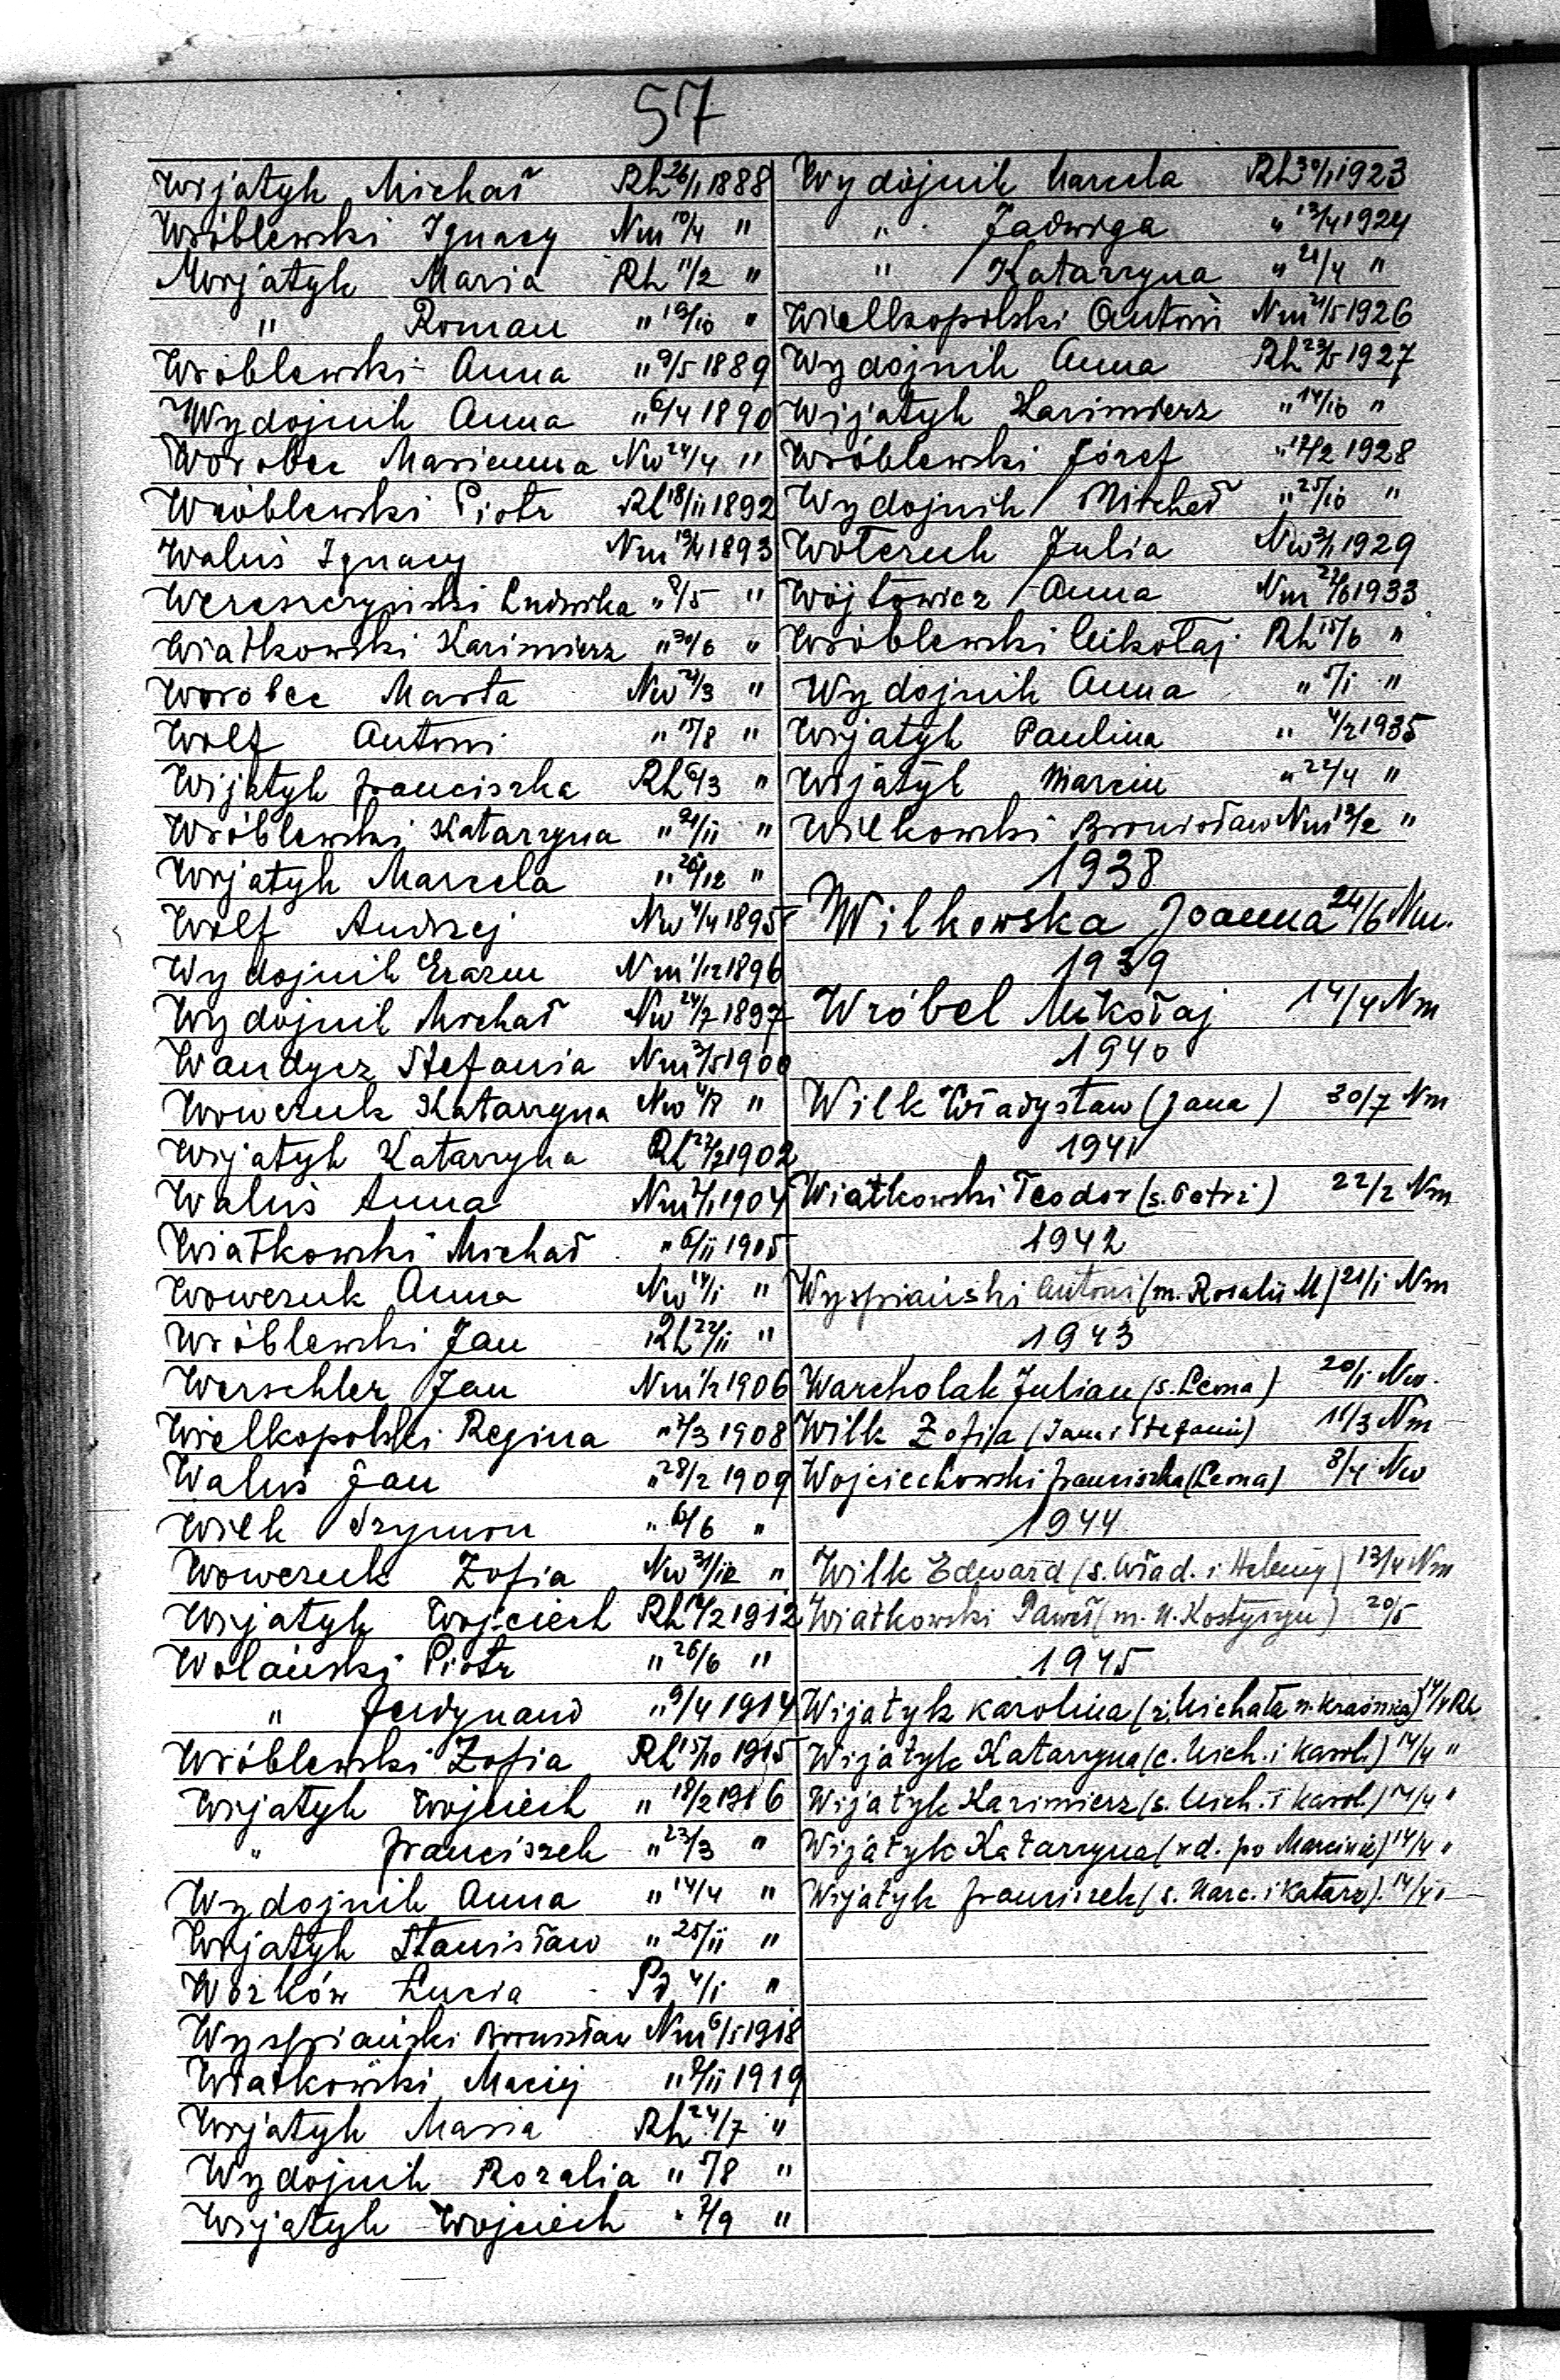 57
Wijatyk Michał Rh 26/1 1888
Wróblewski Ignacy Nm 10/4 "
Wijatyk Maria Rh 11/2 "
" Roman " 19/10 "
Wróblewski Anna " 9/5 1889
Wydojnik Anna " 6/4 1890
Worobec Marianna Nw 24/4 "
Wróblewski Piotr Rh 18/11 1892
Waluś Ignacy Nm 1893
Wereszczyński Ludwika " 8/5 "
Wiatkowski Kazimierz " 30/6 "
Worobec Marta Nw 21/3 "
Wolf Antoni " 15/8 "
Wijatyk Franciszka Rh 6/3 "
Wróblewski Katarzyna " 21/11 "
Wijatyk Marcela " 26/12 "
Wolf Andrzej Nw 4/4 1895
Wydojnik Erazm Nm 1/12 1896
Wydojnik Michał Nw 24/7 1897
Wandycz Stefania Nm 3/5 1900
Woweruk Katarzyna Nw "
Wijatyk Katarzyna Rh 1902
Waluś Anna Nm 1904
Wiatkowski Michał " 6/11 1905
Woweruk Anna Nw 14/1 "
Wróblewski Jan Rh 22/11 "
Werschler Jan Nm 1906
Wielkopolski Regina " 1908
Waluś Jan " 28/2 1909
Wilk Szymon " 6/6 "
Woweruk Zofia Nw 31/12 "
Wijatyk Wojciech Rh 1912
Wolański Piotr " 26/6 "
" Ferdynand " 9/4 1914
Wróblewski Zofia Rh 15/10 1915
Wijatyk Wojciech " 18/2 1916
" Franciszek " 23/3 "
Wydojnik Anna " 14/4 "
Wijatyk Stanisław " 25/11 "
Wozków Łucia Pd 4/1 "
Wyspiański Bronisław Nm 6/5 1918
Wiatkowski Maciej " 1919
Wijatyk Maria Rh 24/7 "
Wydojnik Rozalia " 5/8 "
Wijatyk Wojciech " 2/9 "
Wydojnik Marcela Rh 30/1 1923
" Jadwiga " 13/4 1924
" Katarzyna " 21/4 "
Wielkopolski Antoni Nm 21/5 1926
Wydojnik Anna Rh 23/5 1927
Wijatyk Kazimierz " 14/10 "
Wróblewski Józef " 17/2 1928
Wydojnik Michał " 25/10 "
Woteruk Julia Nw 1929
Wójtowicz Anna Nm 27/6 1933
Wróblewski Mikołaj Rh 15/6 "
Wydojnik Anna " 5/1 "
Wijatyk Paulina " 4/2 1935
Wijatyk Marcin " 22/4 "
Wilkowski Bronisław Nm 13/2 "
1938
Wilkowska Joanna 24/6 Nm.
1939
Wróbel Mikołaj 14/4 Nm
1940
Wilk Władysław (Jana) 30/7 Nm
1941
Wiatkowski Teodor (s. Petri) 22/2 Nm
1942
Wyspiański Antoni (m. Rozalii M) 21/1 Nm
1943
Warcholak Julian (s. Lema) 20/1 Nw.
Wilk Zofija (Jana i Stefanii) 11/3 Nm
Wojciechowski Franciszka (Lema) 8/4 Nw
1944
Wilk Edward (s. Wład. i Heleny) 13/4 Nm
Wiatkowski Paweł (m. N. Kostyszyn) 20/5
1945
Wijatyk Karolina (ż. Michała n. Kraśnica) 14/4 Rh
Wijatyk Katarzyna (c. Mich. i Karol.) 14/4 "
Wijatyk Kazimierz (s. Mich. i Karol.) 14/4 "
Wijatyk Katarzyna (wd. po Marcinie) 14/4 "
Wijatyk Franciszek (s. Marc. i Katarz). 14/4 "